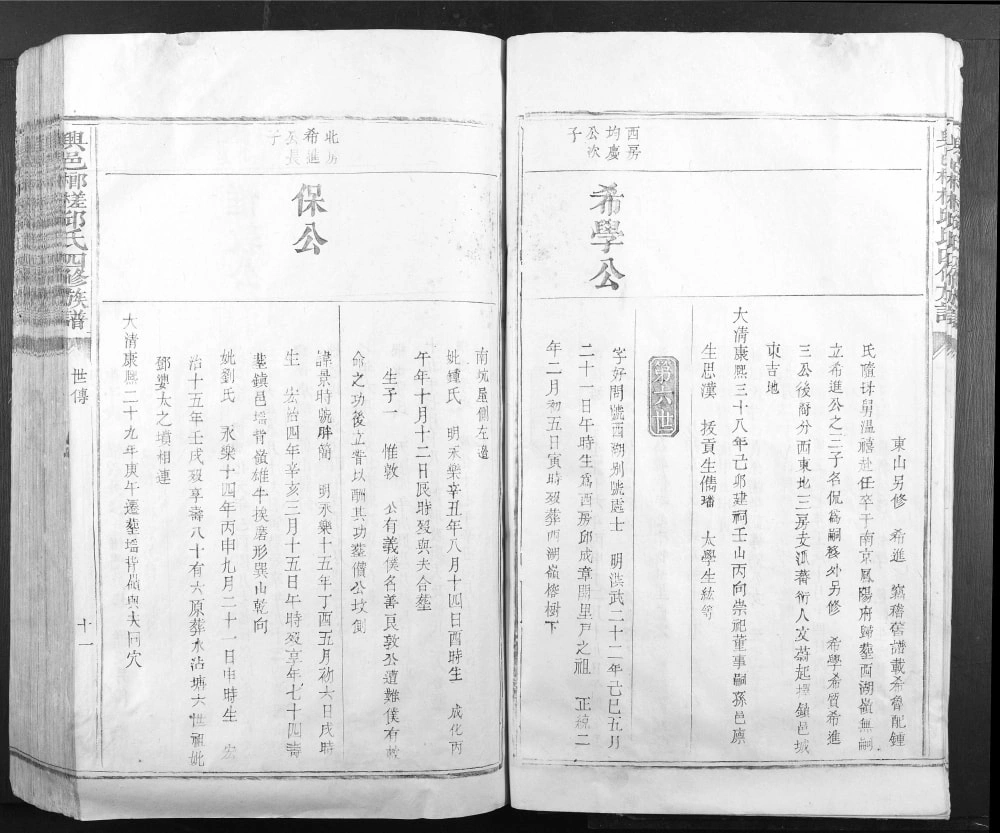 東山另修　希進　竊稽舊譜載希魯配鍾
氏隨母舅溫禧赴任卒于南京鳳陽府歸葬西湖嶺無嗣
立希進公之三子名侃為嗣　外另修　希學希質希進
三公後裔分西東北三房支派蕃衍人文蔚起　鎮邑城
東吉地
大清康熙三十八年己卯建祠壬山丙向崇祀董事嗣孫邑廩
生思漢　拔貢生儁璠　太學生紘等
第六世
西房
均慶
公次
子
希學公
字好問號西湖別號處士　明洪武二十二年己巳五月
二十一日午時生為西房邱成章開里戶之祖　正統二
年二月初五日寅時歿葬西湖嶺榕樹下
南坑屋側左邊
妣鍾氏　明永樂辛丑年八月十四日酉時生　成化丙
午年十月十二日辰時歿與夫合葬
生子一　惟敦　公有義僕名善良敦公遭難僕有救
命之功後立嘗以酬其功葬價公坟側
北房
希進
公長
子
保公
諱景時號胖簡　明永樂十五年丁酉五月初六日戌時
生　宏治四年辛亥三月十五日午時歿享年七十四壽
葬鎮邑塯背嶺雄牛挨磨形巽山乾向
妣劉氏　永樂十四年丙申九月二十一日申時生　宏
治十五年壬戌歿享壽八十有六原葬水沾塘六世祖妣
鄧婆太之墳相連
大清康熙二十九年庚午遷葬塯背嶺與夫同穴
興邑槨槎邱氏四修族譜
世傳
十一